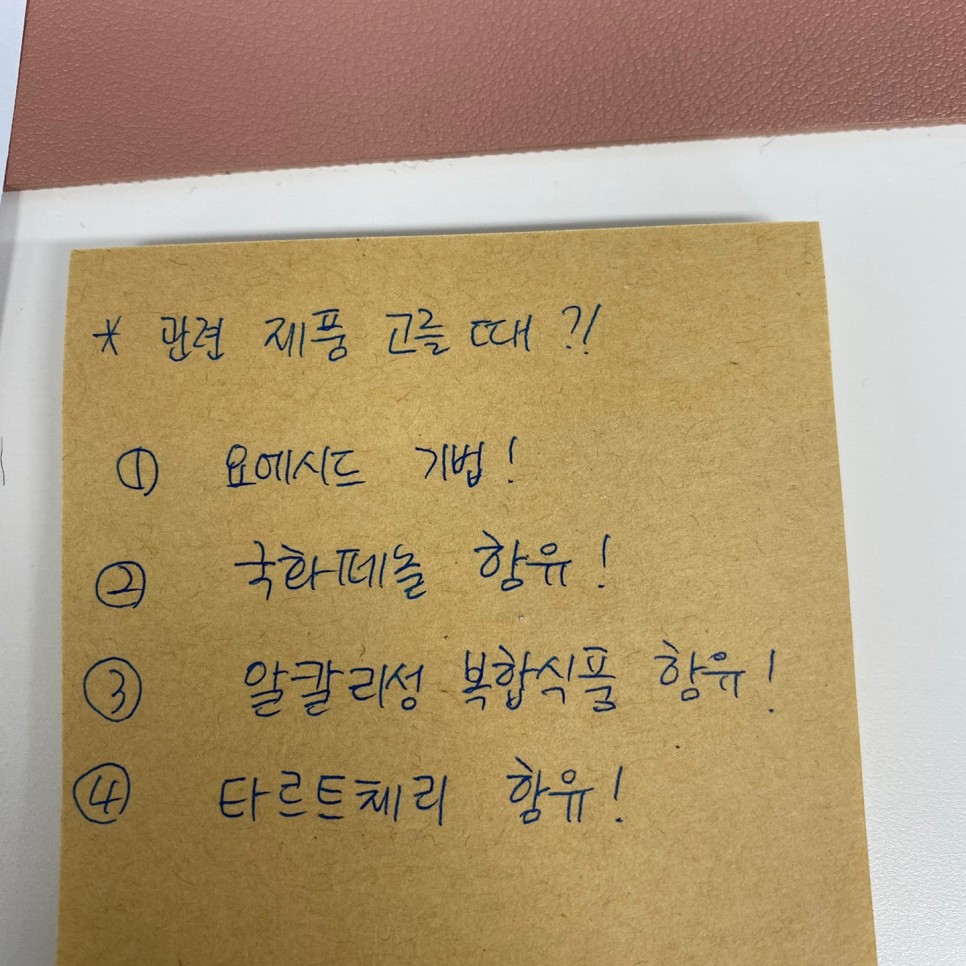 * 관련 제품 고를 때 ?!
① 요에시드 기법!
② 국화페놀 함유!
③ 알칼리성 복합식품 함유!
④ 타르트체리 함유!